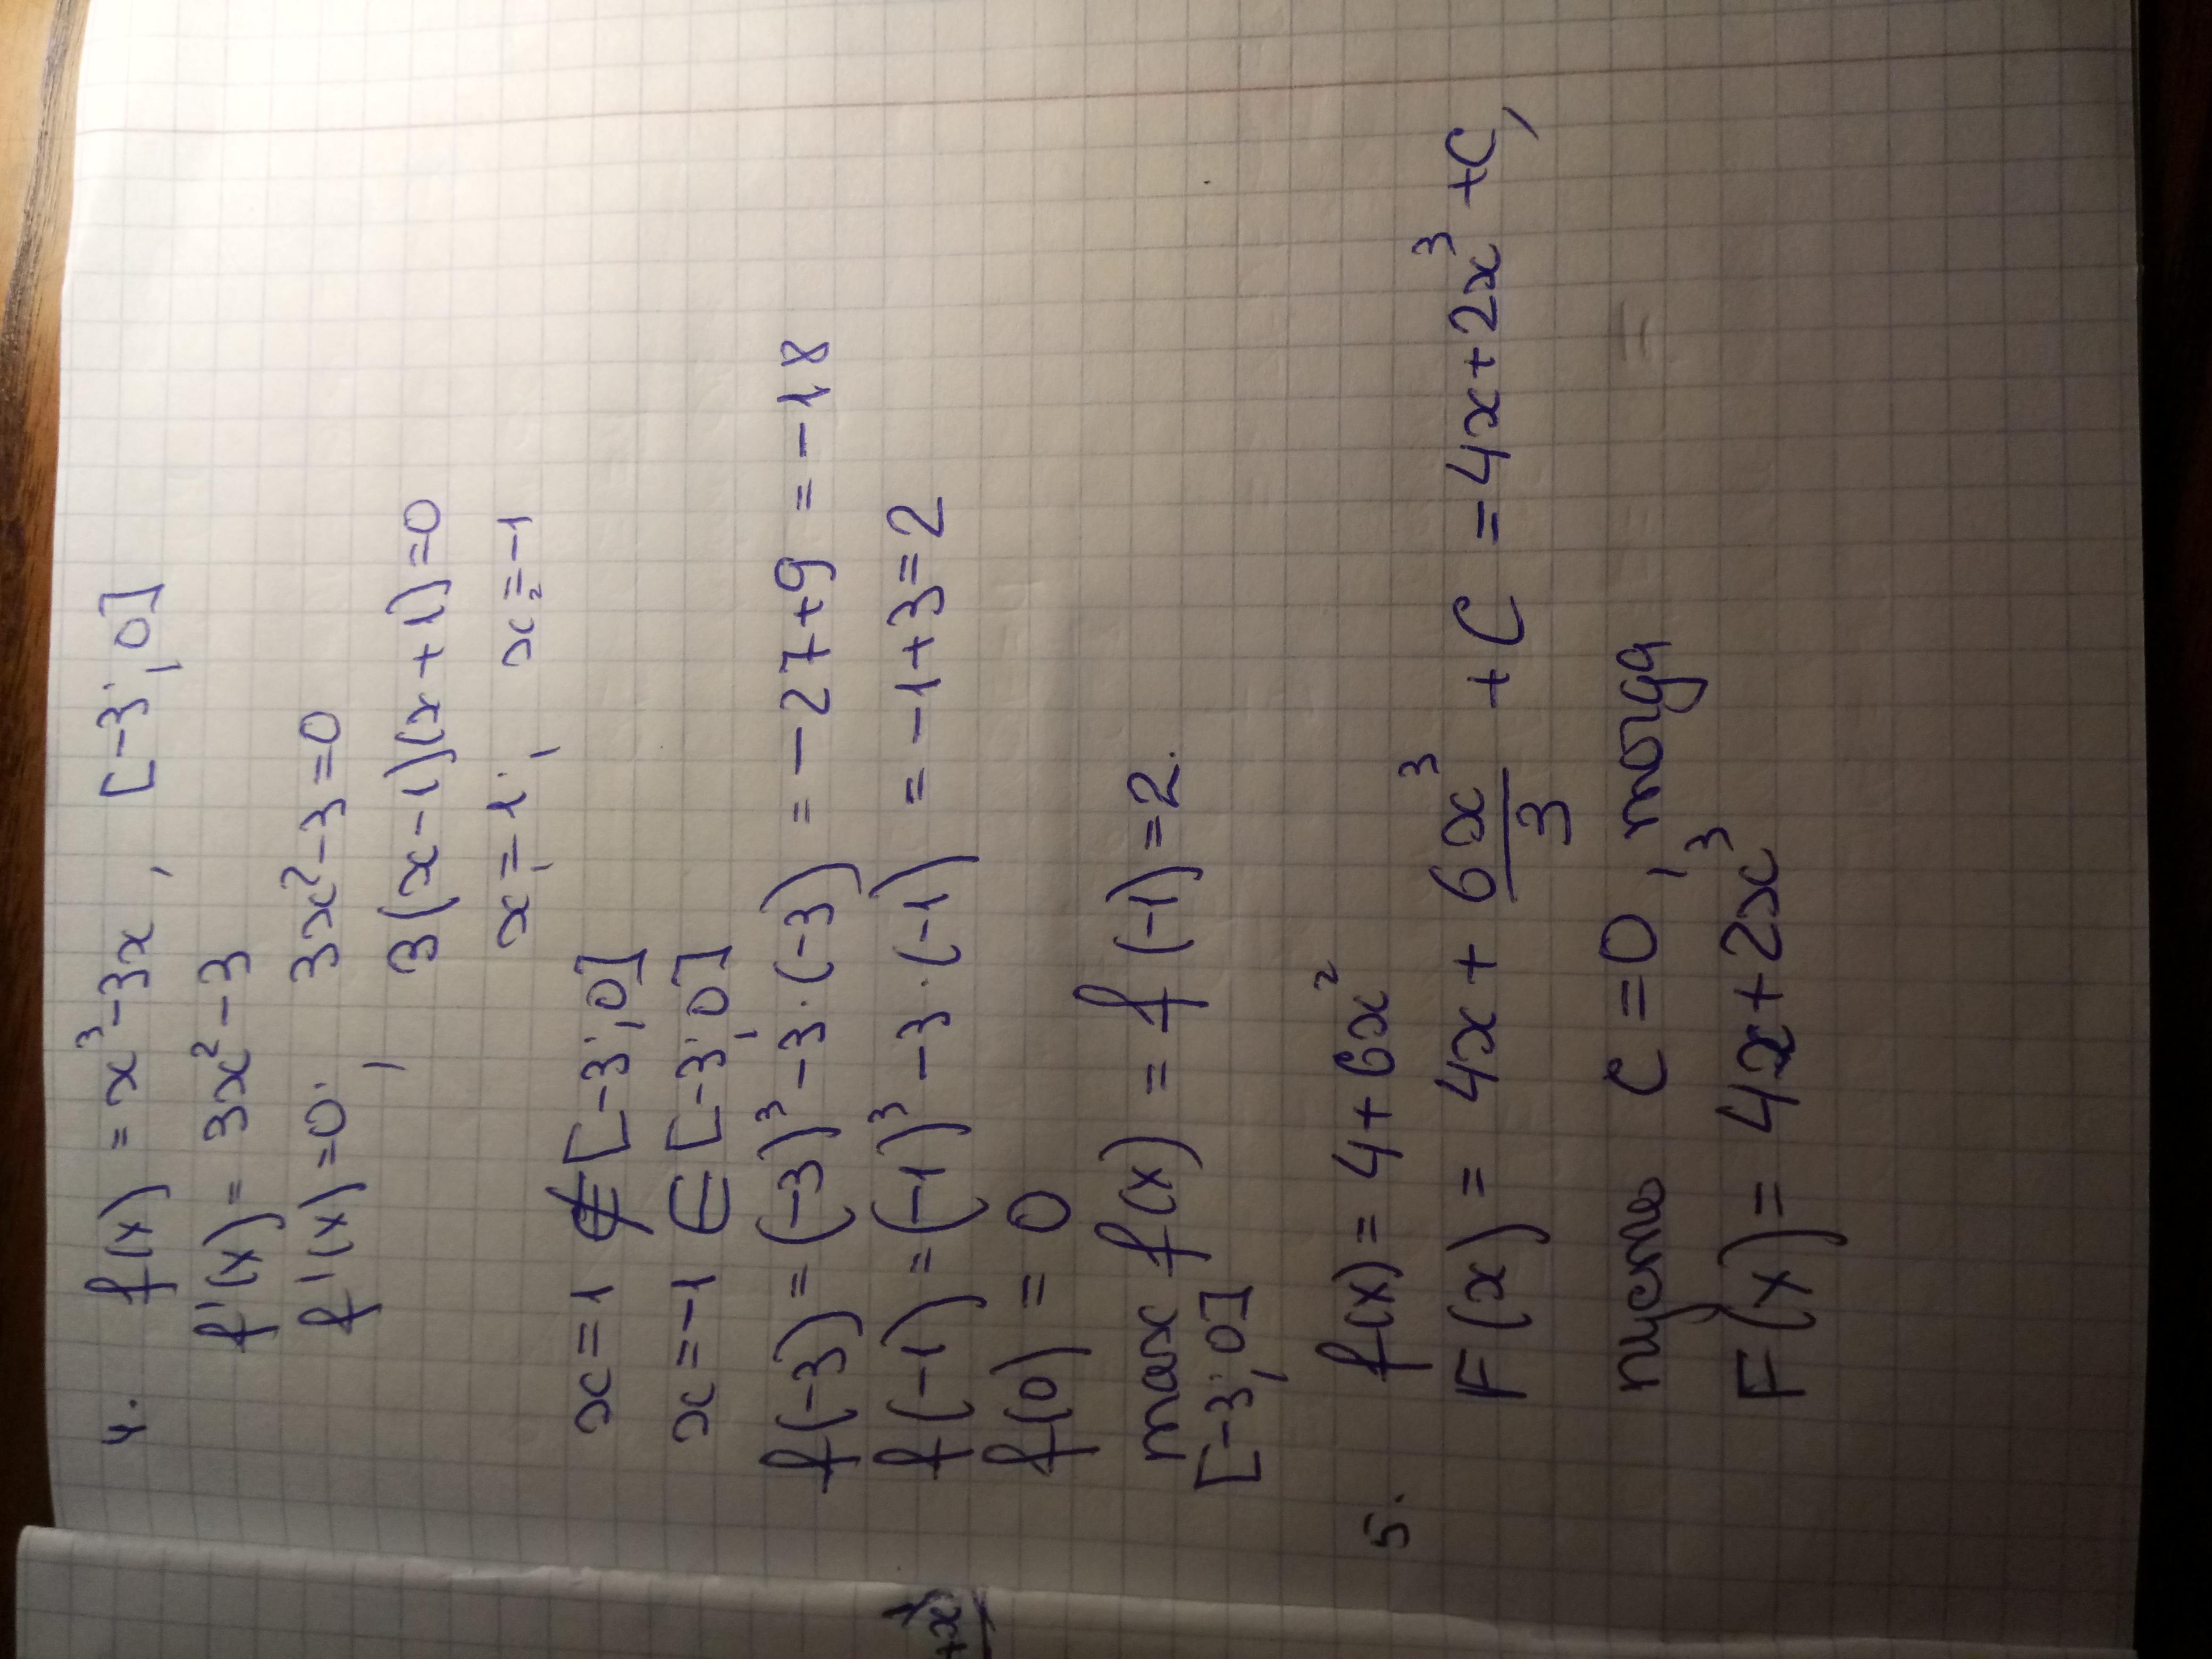 4. f(x) = x³-3x, [-3; 0]
f'(x) = 3x²-3
f'(x)=0; 3x²-3=0
3(x-1)(x+1)=0
x₁=1; x₂=-1
x=1 ∉ [-3; 0]
x=-1 ∈ [-3; 0]
f(-3)=(-3)³-3·(-3) = -27+9 = -18
f(-1)=(-1)³-3·(-1) = -1+3=2
f(0) = 0
max f(x) = f(-1)=2.
[-3; 0]
5. f(x) = 4+6x²
F(x) = 4x + 6x³/3 + C = 4x+2x³+C,
пусть C=0, тогда
F(x)= 4x+2x³
+x